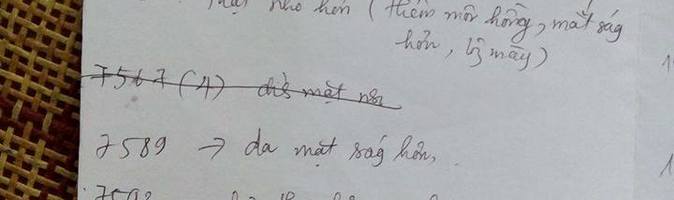 nhỏ hơn (thêm môi hồng, mắt ság
hơn, lg mày)
7567 (A) mặt
7589 → da mặt ság hơn,